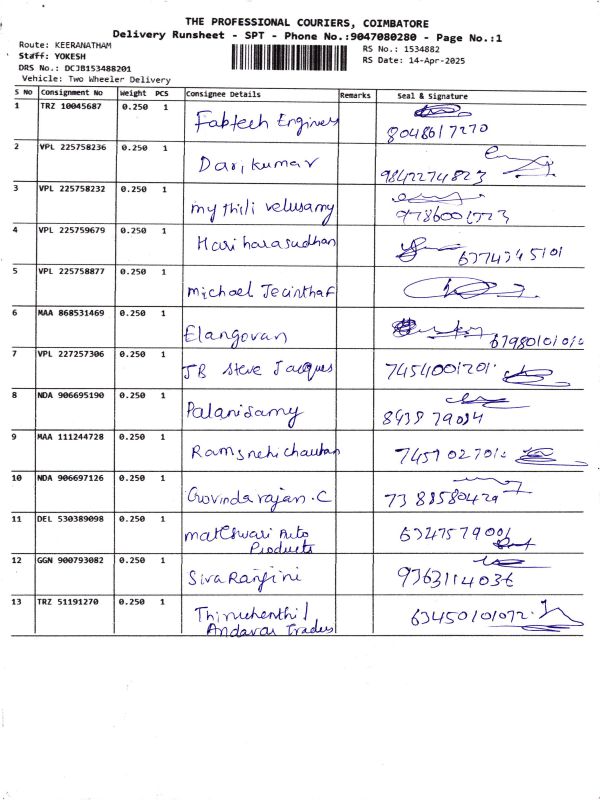 THE PROFESSIONAL COURIERS, COIMBATORE
Delivery Runsheet - SPT - Phone No.:9047080280 - Page No.:1
Route: KEERANATHAM
Staff: YOKESH
DRS No.: DCJB153488201
Vehicle: Two Wheeler Delivery
RS No.: 1534882
RS Date: 14-Apr-2025
S NO Consignment No Weight PCS Consignee Details Remarks Seal & Signature
1 TRZ 10045687 0.250 1 Fabtech Engineers 8048617270
2 VPL 225758236 0.250 1 Dari kumar 9842274823
3 VPL 225758232 0.250 1 mythili velusamy
4 VPL 225759679 0.250 1 Hari harasudhan
5 VPL 225758877 0.250 1 michael Jecinthaf
6 MAA 868531469 0.250 1 Elangovan
7 VPL 227257306 0.250 1 JB Steve Jacques 7454001201
8 NDA 906695190 0.250 1 Palanisamy
9 MAA 111244728 0.250 1 Ramsnehi Chauhan
10 NDA 906697126 0.250 1 Govinda rajan.C
11 DEL 530389098 0.250 1 mateswari Auto
Products
12 GGN 900793082 0.250 1 Siva Ranjini 9363114036
13 TRZ 51191270 0.250 1 Thiruchenthil
Andavar Traders